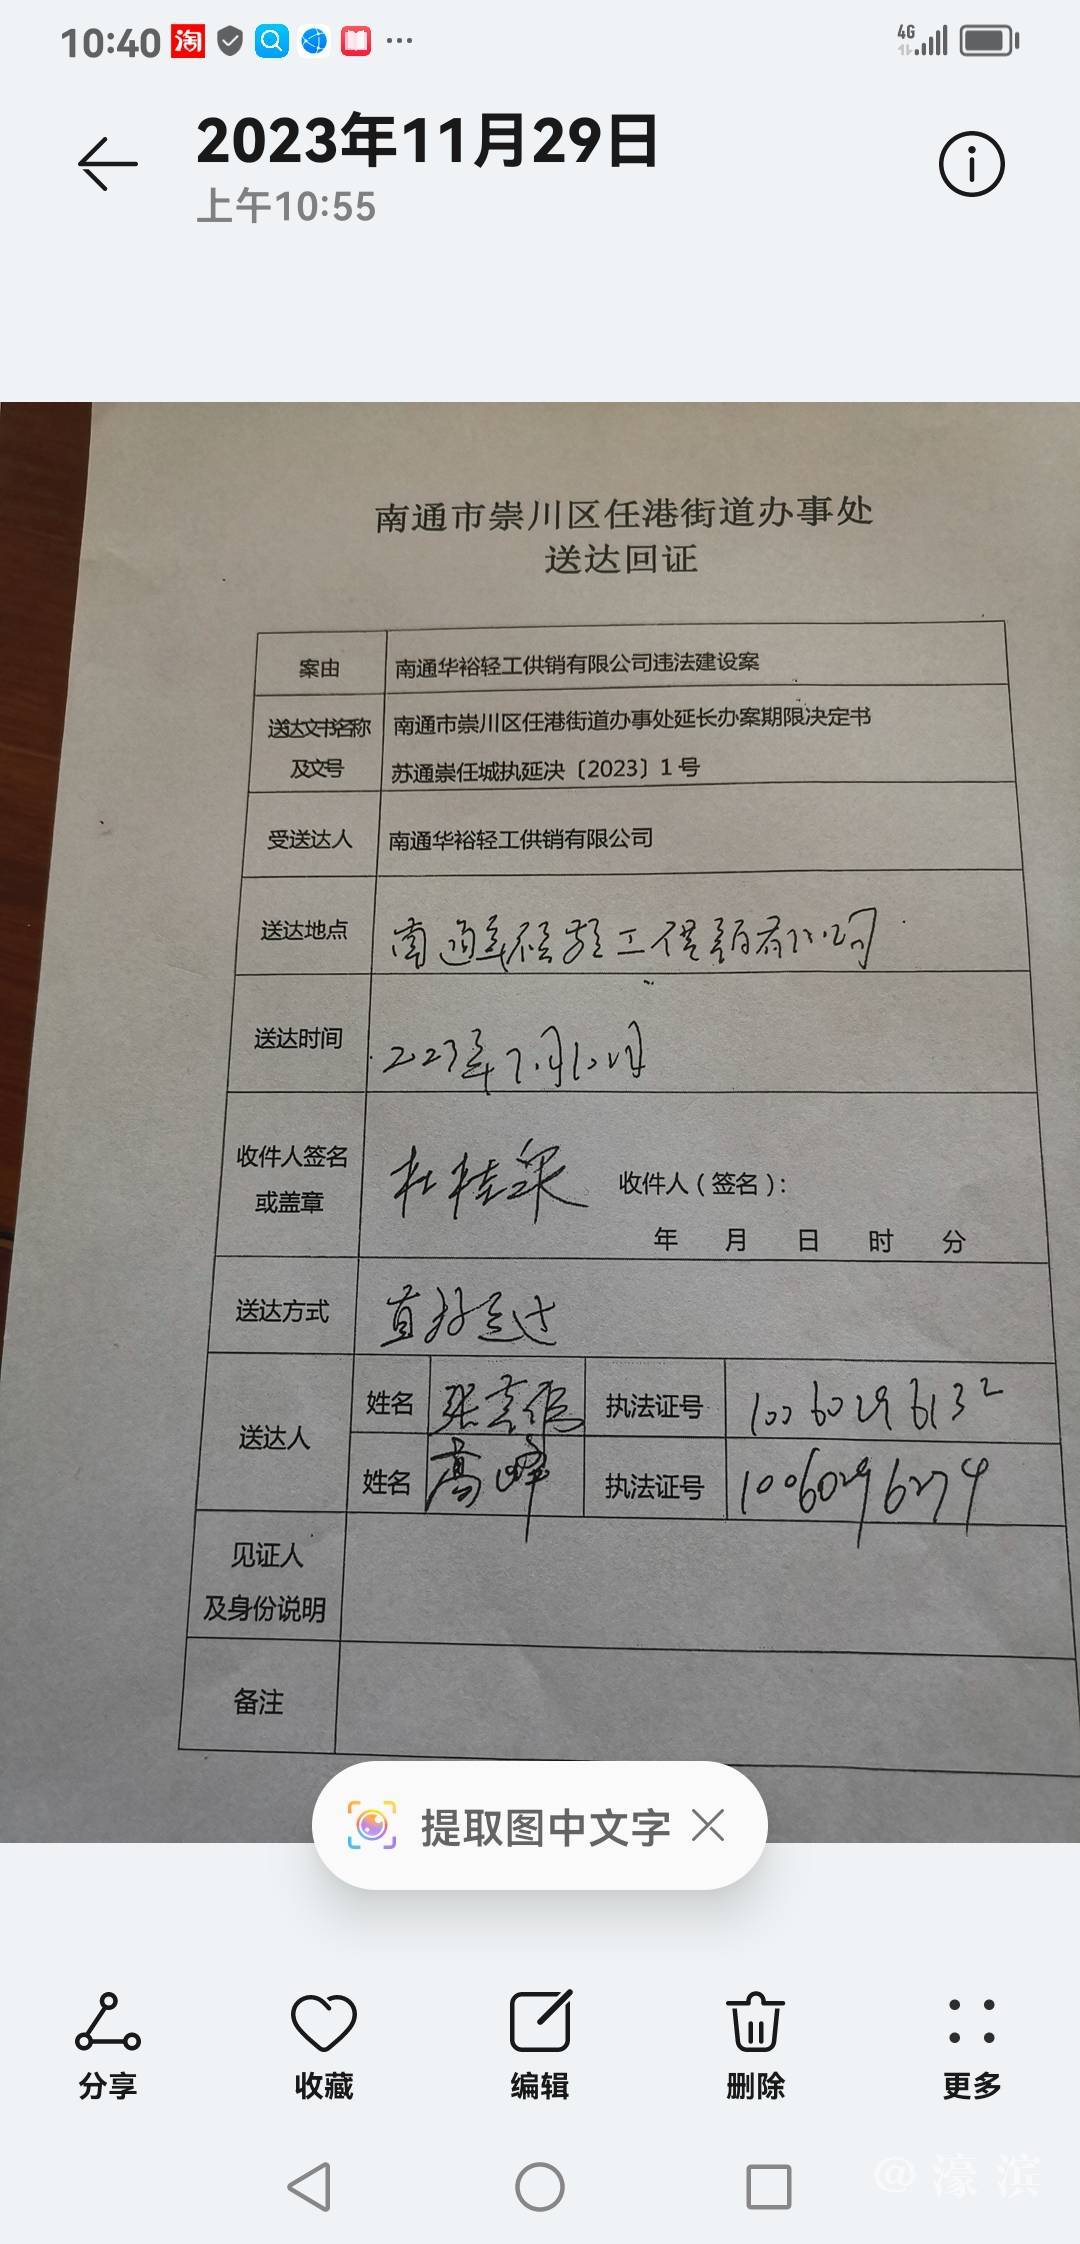 10:40
淘
4G
2023年11月29日
上午10:55
南通市崇川区任港街道办事处
送达回证
案由 南通华裕轻工供销有限公司违法建设案
送达文书名称 南通市崇川区任港街道办事处延长办案期限决定书
及文号 苏通崇任城执延决〔2023〕1号
受送达人 南通华裕轻工供销有限公司
送达地点 南通华裕轻工供销有限公司
送达时间 2023年7月10日
收件人签名 杜桂泉 收件人（签名）：
或盖章
年 月 日 时 分
送达方式 直接送达
姓名 执法证号 10060296132
送达人
姓名 高峰 执法证号 10060296274
见证人
及身份说明
备注
提取图中文字
分享 收藏 编辑 删除 更多
@濠滨